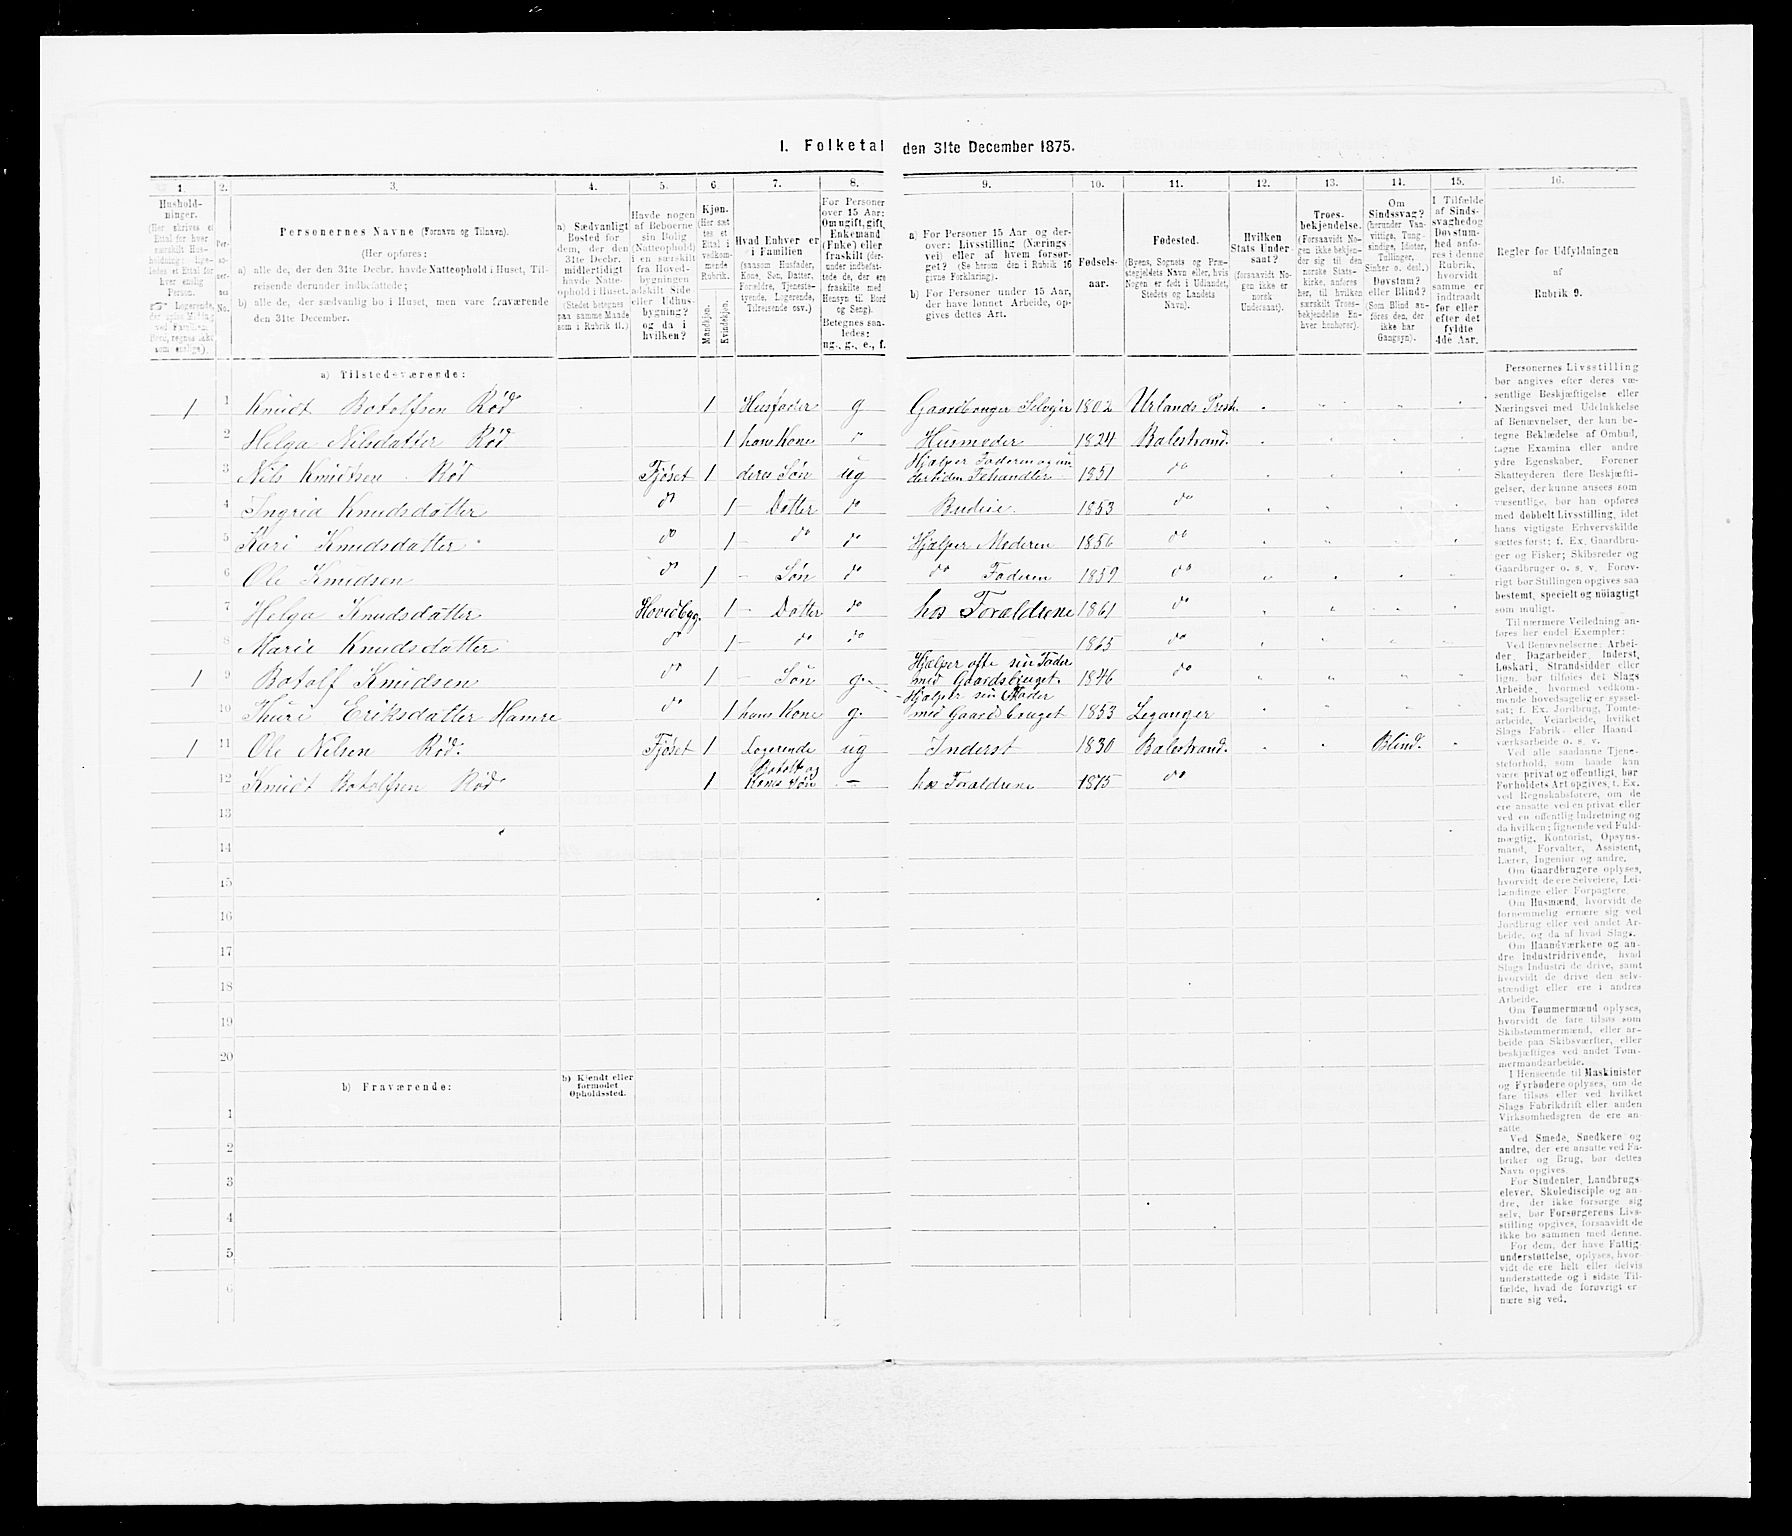 I. Folketal den 31te December 1875.
1. 2. 3. 4. 5. 6. 7. 8. 9. 10. 11. 12. 13. 14. 15. 16.
Husholdninger.
(Her skrives et Ettal for hver særskilt Husholdning; ligeledes et Ettal for hver enslig Person.
Personernes Navne (Fornavn og Tilnavn).
(Her opføres:
a) alle de, der den 31te Decbr. havde Natteophold i Huset, Tilreisende derunder indbefattede;
b) alle de, der sædvanlig bo i Huset, men vare fraværende den 31te December.
a) Sædvanligt Bosted for dem, der den 31te Decbr. midlertidigt havde Natteophold i Huset.
(Stedet betegnes paa samme Maade som i Rubrik 11.)
Havde nogen af Beboerne sin Bolig (Natteophold) i en særskilt fra Hovedbygningen adskilt Side- eller Udhusbygning? og da i hvilken?
Kjøn.
(Her sættes et Ettal i vedkommende Rubrik.
Mandkjøn.
Kvindekjøn.
Hvad Enhver er i Familien
(saasom Husfader, Kone, Søn, Datter, Forældre, Tjenestetyende, Logerende, Tilreisende osv.)
For Personer over 15 Aar: Om ugift, gift, Enkemand (Enke) eller fraskilt (derunder indbefattede de, der ere fraskilte med Hensyn til Bord og Seng).
Betegnes saaledes: ug., g., e., f.
a) For Personer 15 Aar og derover: Livsstilling (Næringsvei) eller af hvem forsørget? (Se herom den i Rubrik 16 givne Forklaring).
b) For Personer under 15 Aar, der have lønnet Arbeide, opgives dettes Art.
Fødselsaar.
Fødested.
(Byens, Sognets og Præstegjeldets Navn eller, hvis Nogen er født i Udlandet, Stedets og Landets Navn).
Hvilken Stats Undersaat?
(forsaavidt Nogen ikke er norsk Undersaat).
Troesbekjendelse.
(Forsaavidt Nogen ikke bekjender sig til den norske Statskirke, anføres her, til hvilken særskilt Troesbekjendelse Enhver henhører).
Om Sindssvag? (herunder Vanvittige, Tungsindige, Idioter, Tullinger, Sinker o. desl.)
Døvstum? eller Blind?
(Som Blind anføres den, der ikke har Gangsyn).
I Tilfælde af Sindssvaghed og Døvstumhed anføres i denne Rubrik, hvorvidt samme er indtraadt før eller efter det fyldte 4de Aar.
Regler for Udfyldningen af Rubrik 9.
a) Tilstedeværende:
1 1 Knudt Botolfsen Rød 1 Husfader g Gaardbruger Selveier 1802 Urlands Prest.
2 Helga Nilsdatter Rød 1 hans Kone " Husmoder 1824 Balestrand.
3 Nils Knudsen Rød Fjøset 1 deres Søn ug Hjælper Faderen og undertiden Fehandler 1851 do
4 Ingrid Knudsdatter do 1 — Datter do Budeie. 1853 do
5 Kari Knudsdatter do 1 — do do Hjælper Moderen 1856 do
6 Ole Knudsen do 1 — Søn do do Faderen 1859 do
7 Helga Knudsdatter Hovedbyg. 1 — Datter do hos Forældrene 1861 do
8 Marie Knudsdatter do 1 — do do 1865 do
1 9 Botolf Knudsen do 1 — Søn g. Hjælper ofte sin Fader med Gaardsbruget. 1846 do
10 Thuri Eriksdatter Hamre do 1 hans Kone g. Hjælper sin Fader med Gaardsbruget 1853 Leganger
1 11 Ole Nilsen Rød. Fjøset 1 Logerende ug Inderst 1830 Balestrand. Blind.
12 Knudt Botolfsen Rød 1 Botolfs og Kones Søn — hos Forældrene 1875 do
13
14
15
16
17
18
19
20
b) Fraværende:
b) Kjendt eller formodet Opholdssted.
1
2
3
4
5
6
Personernes Livsstilling
bør angives efter deres væ-
sentlige Beskjæftigelse eller
Næringsvei med Udelukkelse
af Benævnelser, der kun be-
tegne Beklædelse af Ombud,
tagne Examina eller andre
ydre Egenskaber. Forener
Skatteyderen flere Beskjæfti-
gelser, der kunne ansees som
væsentlige, bør han opføres
med dobbelt Livsstilling, idet
hans vigtigste Erhvervskilde
sættes først; f. Ex. Gaardbru-
ger og Fisker; Skibsreder og
Gaardbruger o. s. v. Forøv-
rigt bør Stillingen opgives saa
bestemt, specielt og nøiagtigt
som muligt.
Til nærmere Veiledning an-
føres her endel Exempler:
Ved Benævnelserne: Arbei-
der, Dagarbeider, Inderst,
Løskarl, Strandsidder eller
lign. bør tilføies det Slags
Arbeide, hvormed vedkom-
mende hovedsagelig er syssel-
sat; f. Ex. Jordbrug, Tomte-
arbeide, Veiarbeide, hvilket
Slags Fabrik- eller Haand-
værksarbeide o. s. v.
Ved alle saadanne Tjene-
steforhold, som baade kan
være privat og offentligt, bør
Forholdets Art opgives, t. Ex.
ved Regnskabsførere, om de
ere ansatte ved en privat eller
ved en offentlig Indretning og
da hvilken; lignende ved Fuld-
mægtig, Kontorist, Opsyns-
mand, Forvalter, Assistent,
Lærer, Ingeniør og andre.
Om Gaardbrugere oplyses,
hvorvidt de ere Selveiere, Lei-
lændinge eller Forpagtere.
Om Husmænd, hvorvidt de
fornemmelig ernære sig ved
Jordbrug eller ved andet Ar-
beide, og da af hvad Slags.
Om Haandværkere og an-
dre Industridrivende, hvad
Slags Industri de drive, samt
hvorvidt de drive den selv-
stændigt eller ere i andres
Arbeide.
Om Tømmermænd oplyses,
hvorvidt de fare tilsøs som
Skibstømmermænd, eller ar-
beide paa Skibsværfter, eller
beskjæftiges ved andet Tøm-
mermandsarbeide.
I Henseende til Maskinister
og Fyrbødere oplyses, om de
fare tilsøs eller ved hvilket
Slags Fabrikdrift eller anden
Virksomhedsgren de ere an-
satte.
Ved Smede, Snedkere og
andre, der ere ansatte ved Fa-
briker og Brug, bør dettes
Navn opgives.
For Studenter, Landbrugs-
elever, Skoledisciple og an-
dre, der ikke forsørge sig
selv, bør Forsørgerens Livs-
stilling opgives, forsaavidt de
ikke bo sammen med denne.
For dem, der have Fattig-
understøttelse, oplyses, hvor-
vidt de ere helt eller delvis
understøttede og i sidste Til-
fælde, hvad de forøvrigt er-
nære sig ved.